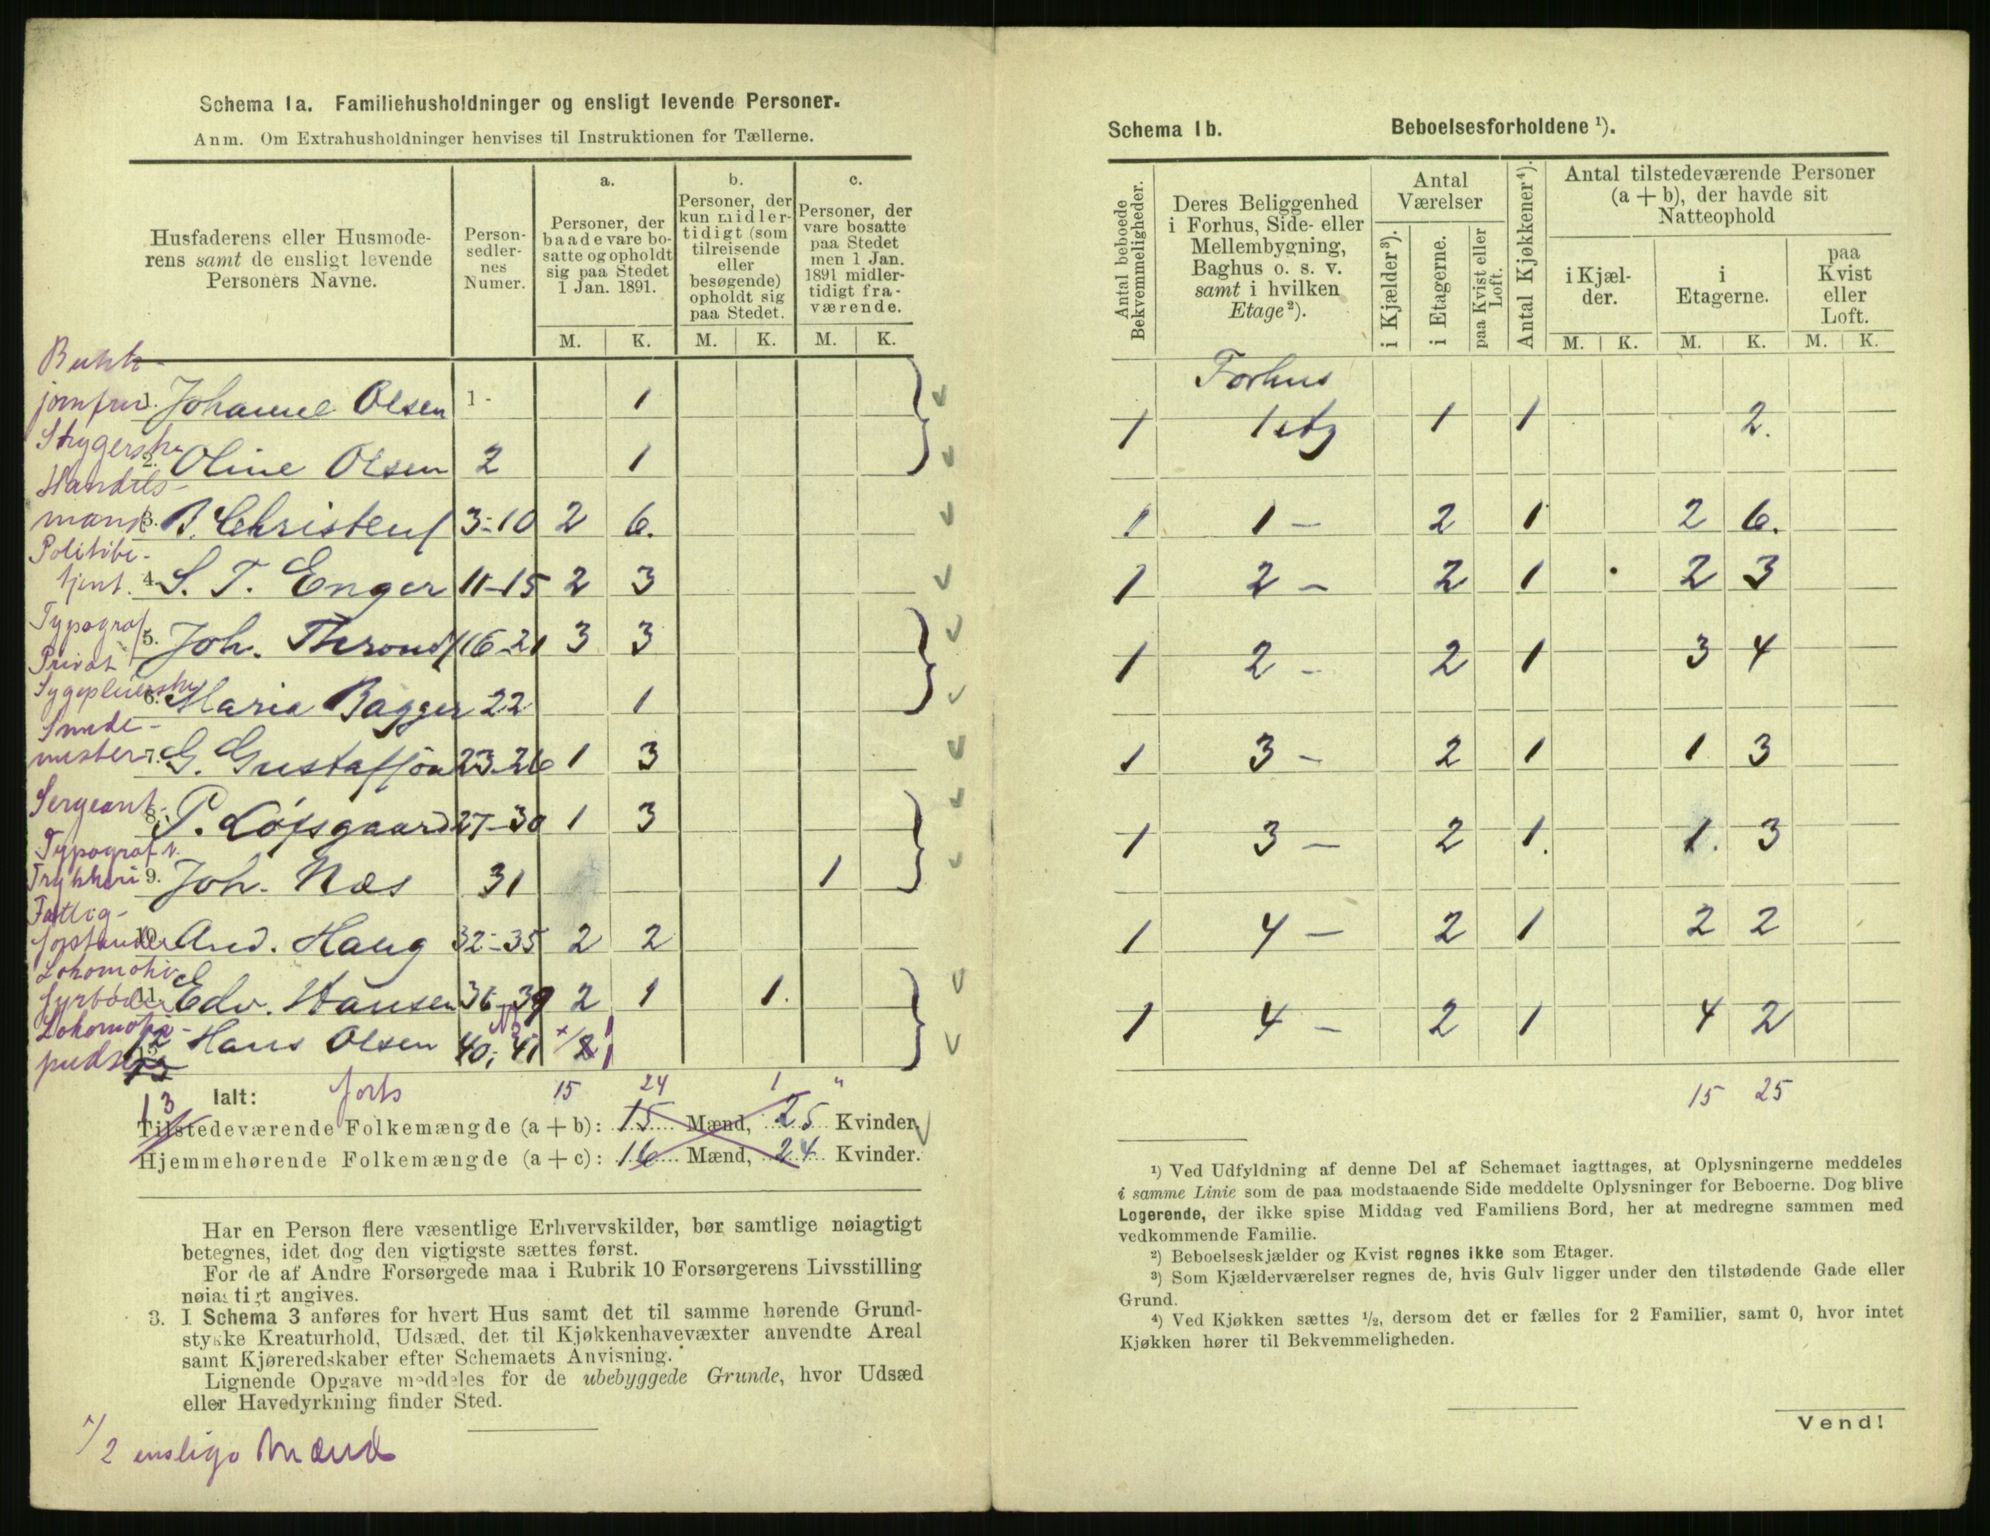 Schema 1a. Familiehusholdninger og ensligt levende Personer.
Anm. Om Extrahusholdninger henvises til Instruktionen for Tællerne.
Husfaderens eller Husmode-
rens samt de ensligt levende
Personers Navne.
Person-
sedler-
nes
Numer.
a.
Personer, der
baade vare bo-
satte og opholdt
sig paa Stedet
1 Jan. 1891.
b.
Personer, der
kun midler-
tidigt (som
tilreisende
eller
besøgende)
opholdt sig
paa Stedet.
c.
Personer, der
vare bosatte
paa Stedet
men 1 Jan.
1891 midler-
tidigt fra-
værende.
M. K. M. K. M. K.
jomfru 1. Johanne Olsen 1 - 1
Strygerske
2. Oline Olsen 2 1
Handels-
mand 3. B. Christens 3-10 2 6.
Politibe-
tjent. 4. S. T. Enger 11-15 2 3
Typograf
5. Joh. Thronds 16-21 3 3
Privat
Sygepleierske
6. Maria Bagger 22 1
Smede-
mester 7. G. Gustafson 23-26 1 3
Sergeant
8. P. Løfsgaard 27-30 1 3
Typograf
Trykkeri 9. Joh. Næs 31 1
Fattig-
forstander 10. And. Haug 32-35 2 2
Lokomotiv
fyrbøder 11. Edv. Hansen 36-39 2 1 1.
Lokomotiv-
pudser 12 Hans Olsen 40, 41 x/2
Ialt: 15 24 1 "
13
Tilstedeværende Folkemængde (a + b): 15 Mænd, 25 Kvinder.
Hjemmehørende Folkemængde (a + c): 16 Mænd, 24 Kvinder.
Har en Person flere væsentlige Erhvervskilder, bør samtlige nøiagtigt
betegnes, idet dog den vigtigste sættes først.
For de af Andre Forsørgede maa i Rubrik 10 Forsørgerens Livsstilling
nøiagtigt angives.
3. I Schema 3 anføres for hvert Hus samt det til samme hørende Grund-
stykke Kreaturhold, Udsæd, det til Kjøkkenhavevæxter anvendte Areal
samt Kjøreredskaber efter Schemaets Anvisning.
Lignende Opgave meddeles for de ubebyggede Grunde, hvor Udsæd
eller Havedyrkning finder Sted.
x/ 2 enslige Mænd
Schema 1b. Beboelsesforholdene ¹).
Antal beboede
Bekvemmeligheder.
Deres Beliggenhed
i Forhus, Side- eller
Mellembygning,
Baghus o. s. v.
samt i hvilken
Etage ²).
Antal
Værelser
i Kjælder ³).
i Etagerne.
paa Kvist eller
Loft.
Antal Kjøkkener ⁴).
Antal tilstedeværende Personer
(a + b), der havde sit
Natteophold
i Kjæl-
der.
i
Etagerne.
paa
Kvist
eller
Loft.
M. K. M. K. M. K.
Forhus
1 1 etg 1 1 2.
1 1 - 2 1 2 6.
1 2 - 2 1 2 3
1 2 - 2 1 3 4
1 3 - 2 1 1 3
1 3 - 2 1. 1. 3
1 4 - 2 1 2 2
1 4 - 2 1 4 2
15 25
¹) Ved Udfyldning af denne Del af Schemaet iagttages, at Oplysningerne meddeles
i samme Linie som de paa modstaaende Side meddelte Oplysninger for Beboerne. Dog blive
Logerende, der ikke spise Middag ved Familiens Bord, her at medregne sammen med
vedkommende Familie.
²) Beboelseskjælder og Kvist regnes ikke som Etager.
³) Som Kjælderværelser regnes de, hvis Gulv ligger under den tilstødende Gade eller
Grund.
⁴) Ved Kjøkken sættes ¹/₂, dersom det er fælles for 2 Familier, samt 0, hvor intet
Kjøkken hører til Bekvemmeligheden.
Vend!